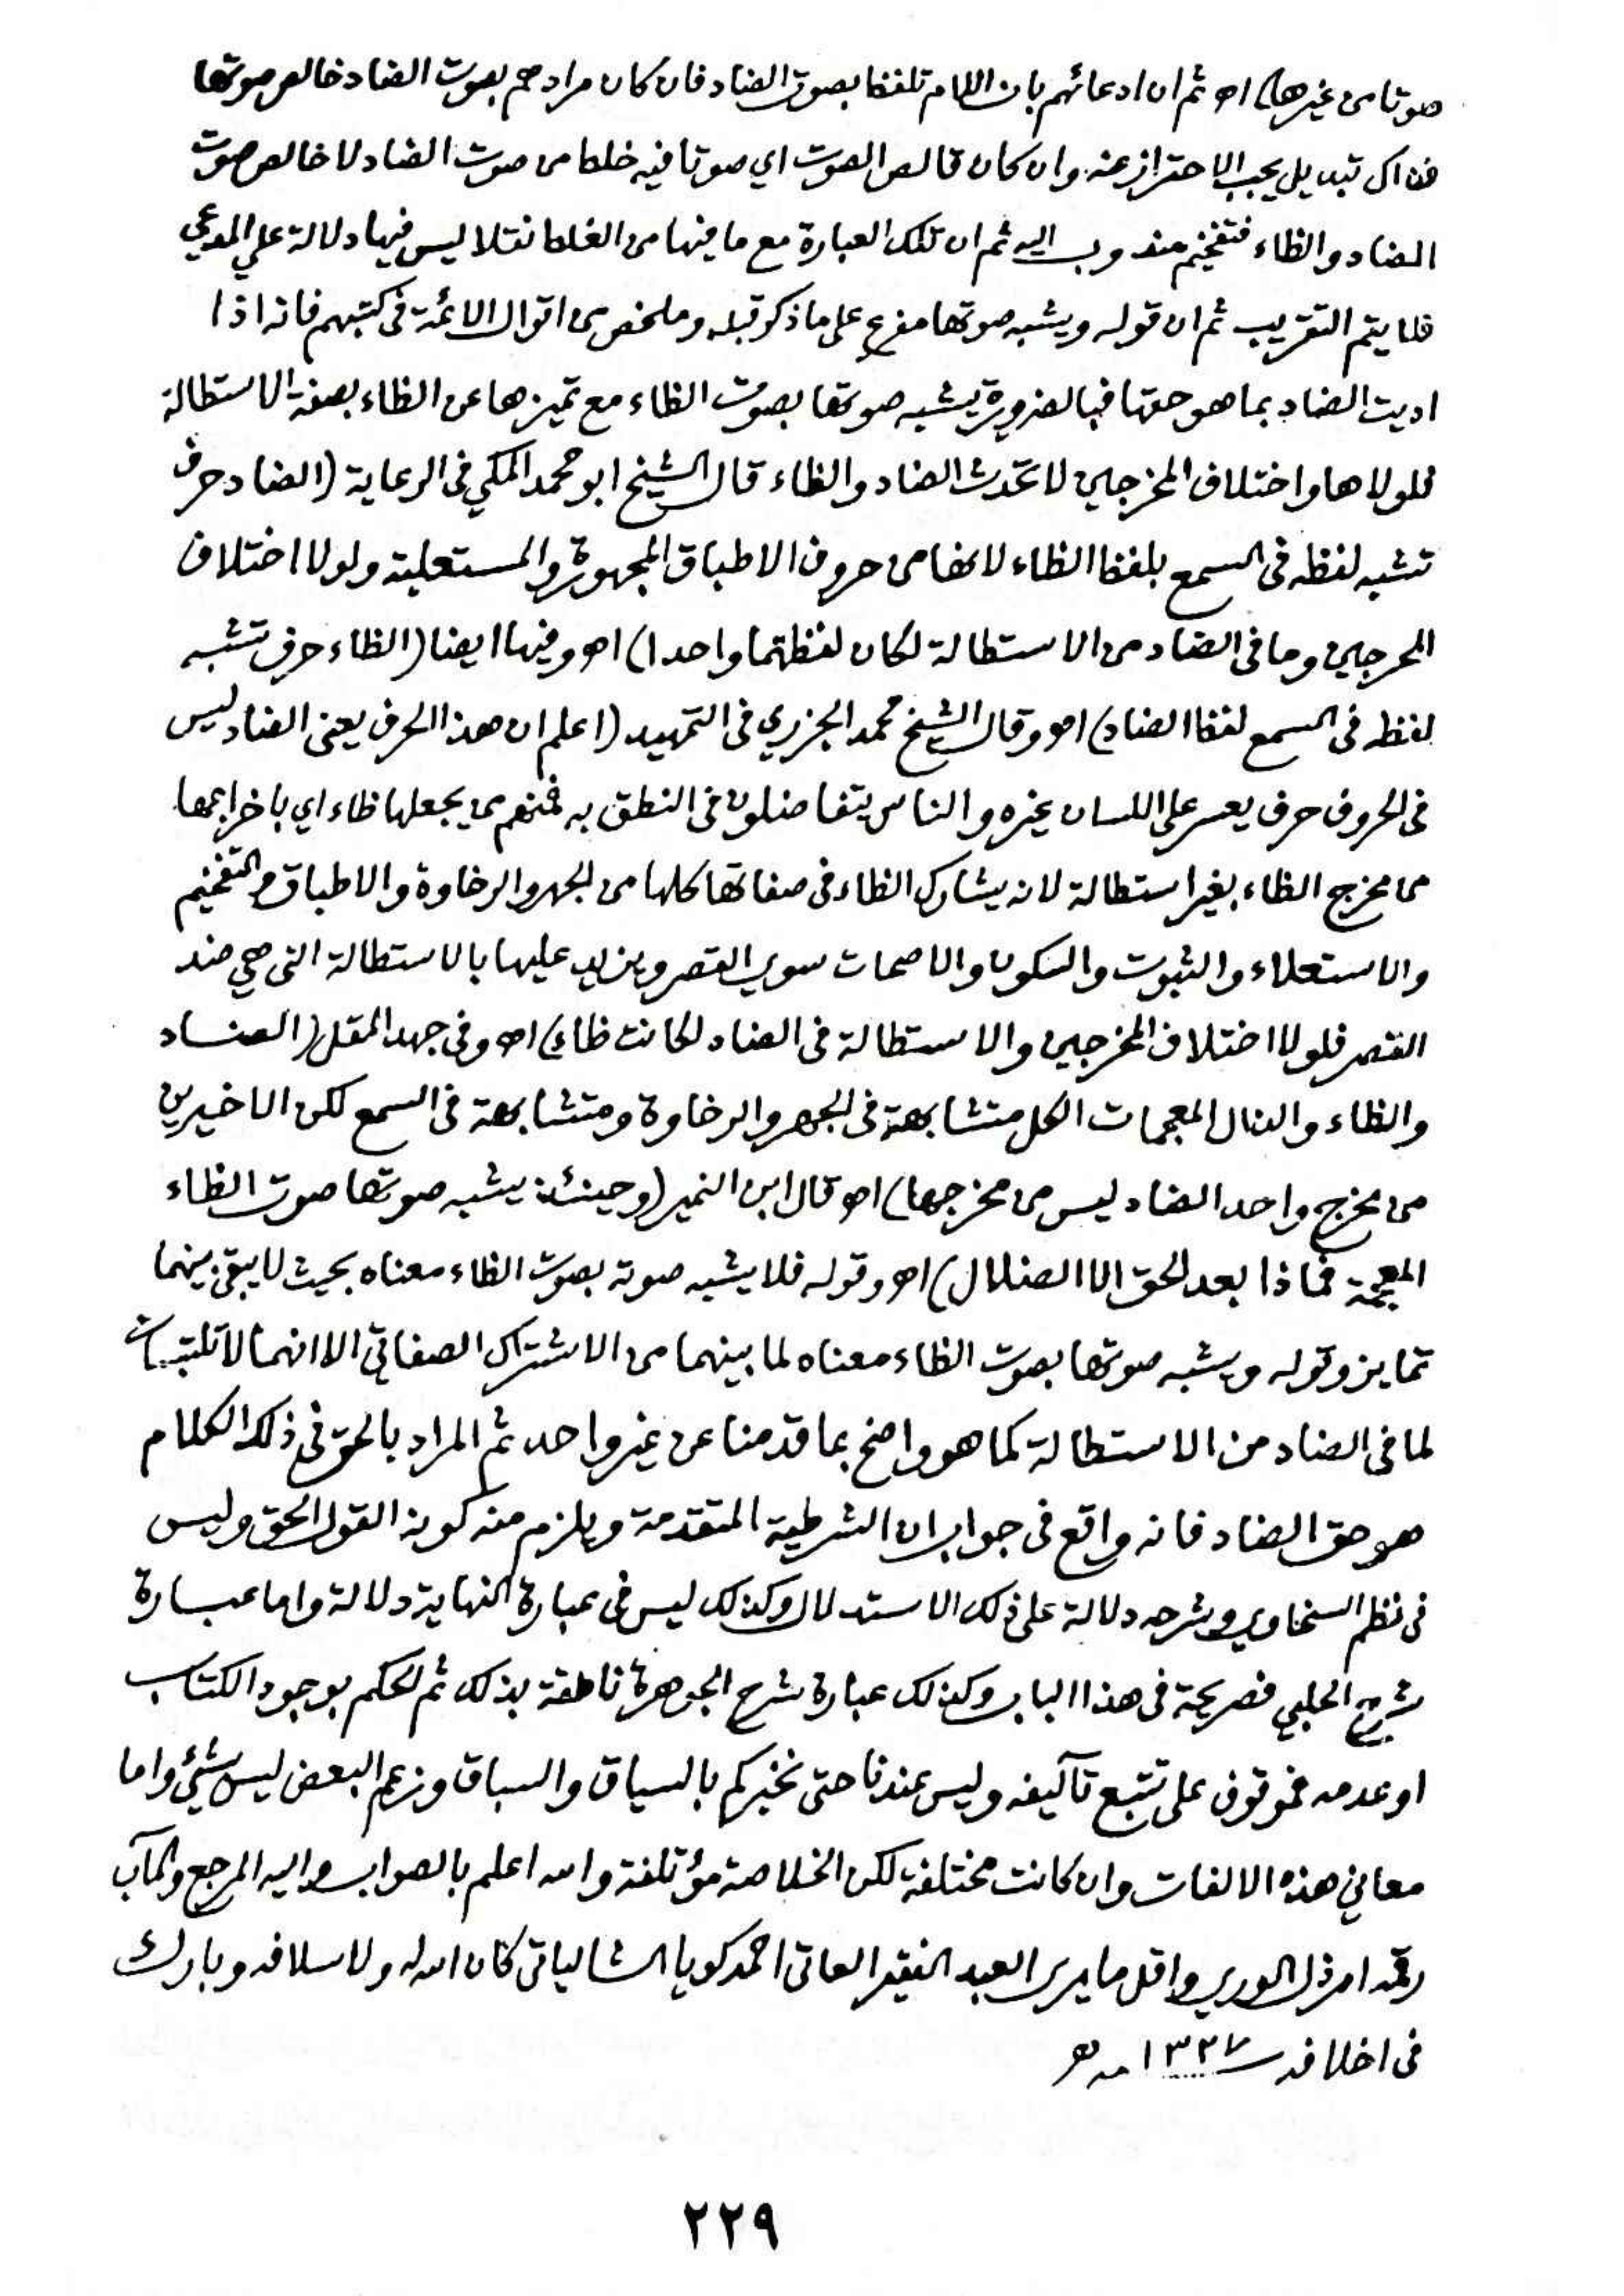 صوتا من غيرها) اھ ثم ان ادعائهم بان اللام تلفظ بصوت الضاد فان كان مرادهم بصوت الضاد خالص صوتها
فذاك تبديل يجب الاحتراز عنه وان كان قالص الصوت اي صوتا فيه خلط من صوت الضاد لا خالص صوت
الضاد والظاء فتفخيم مندوب اليه ثم ان تلك العبارة مع ما فيها من الغلط نقلا ليس فيها دلالة علي المدعي
فلا يتم التقريب ثم ان قوله ويشبه صوتها مفرع على ما ذكر قبله وملخص من اقوال الائمة في كتبهم فانه اذا
اديت الضاد بما هو حقها فبالضرورة يشبه صوتها بصوت الظاء مع تميزها عن الظاء بصفة الاستطالة
فلولاها واختلاف المخرجين لاتحدت الضاد والظاء قال الشيخ ابو محمد المكي في الرعاية (الضاد حرف
تشبه لفظه في السمع بلفظ الظاء لانها من حروف الاطباق المجهورة والمستعلية ولولا اختلاف
المخرجين وما في الضاد من الاستطالة لكان لفظتهما واحدا) اھ وفيها ايضا (الظاء حرف تشبه
لفظه في السمع لفظ الضاد) اھ وقال الشيخ محمد الجزري في التمهيد (اعلم ان هذا الحرف يعني الضاد ليس
في الحروف حرف يعسر على اللسان غيره والناس يتفاضلون في النطق به فمنهم من يجعلها ظاء اي باخراجها
من مخرج الظاء بغير استطالة لانه يشارك الظاء في صفاتها كلها من الجهر والرخاوة والاطباق والتفخيم
والاستعلاء والثبوت والسكون والاصمات سوي القصر ويزيد عليها بالاستطالة التي هي ضد
القصر فلولا اختلاف المخرجين والاستطالة في الضاد لكانت ظاء) اھ وفي جهد المقل (الضاد
والظاء والذال المعجمات الكل متشابهة في الجهر والرخاوة ومتشابهة في السمع لكن الاخيرين
من مخرج واحد الضاد ليس من مخرجها) اھ قال ابن النمير (وحينئذ يشبه صوتها صوت الظاء
المعجمة فماذا بعد الحق الا الضلال) اھ وقوله فلا يشبه صوته بصوت الظاء معناه بحيث لا يبقى بينهما
تمايز وقوله ويشبه صوتها بصوت الظاء معناه لما بينهما من الاشتراك الصفاتي الا انهما لا تلتبسان
لما في الضاد من الاستطالة كما هو واضح بما قدمنا عن غير واحد ثم المراد بالحق في ذلك الكلام
هو حق الضاد فانه واقع في جواب ان الشرطية المتقدمة ويلزم منه كونه القول الحق وليس
في نظم السخاوي وشرحه دلالة على ذلك الاستدلال وكذلك ليس في عبارة النهاية دلالة واما عبارة
شرح الحلبي فصريحة في هذا الباب وكذلك عبارة شرح الجوهرة ناطقة بذلك ثم الحكم بوجود الكتاب
او عدمه فموقوف على تتبع تآليفه وليس عندنا حتى نخبركم بالسياق والسباق وزعم البعض ليس بشيئ واما
معاني هذه الالفات وان كانت مختلفة لكن الخلاصة مؤتلفة والله اعلم بالصواب واليه المرجع والمآب
رقمه ارذل الوري واقل ما يري العبد الفقير العاتي احمد كويا الشالياتي كان الله له ولاسلافه وبارك
في اخلافه ١٣٢٧ هـ
٢٢٩